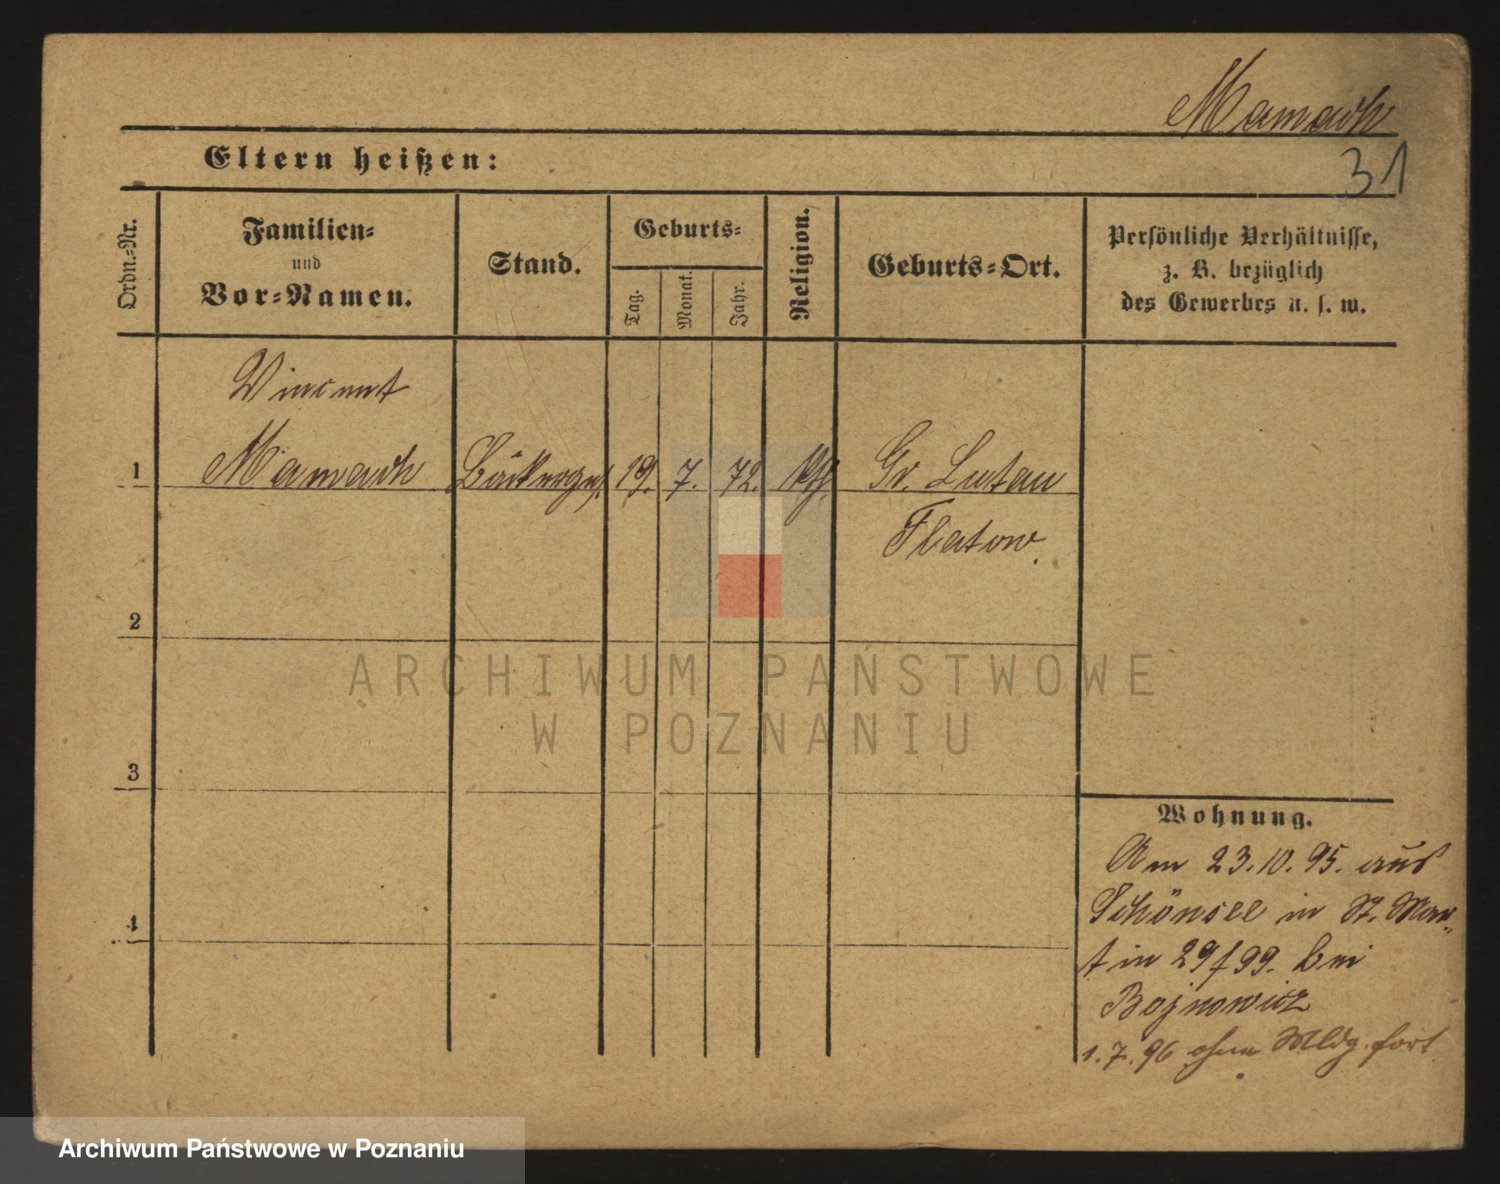 Mamach
31
Eltern heißen:
Ordn.-Nr.
Familien-
und
Vor-Namen.
Stand.
Geburts-
Tag.
Monat.
Jahr.
Religion.
Geburts-Ort.
Persönliche Verhältnisse,
z. B. bezüglich
des Gewerbes u. s. w.
Vincent
1 Mamach Bäckerges. 19. 7. 72. kth. Gr. Lutau
Flatow.
2
3
4
Wohnung.
Am 23.10.95. aus
Schönsee in St. Mar-
tin 29/99. bei
Bojnowicz
1.7.96 ohne Mldg. fort
ARCHIWUM PAŃSTWOWE
W POZNANIU
Archiwum Państwowe w Poznaniu